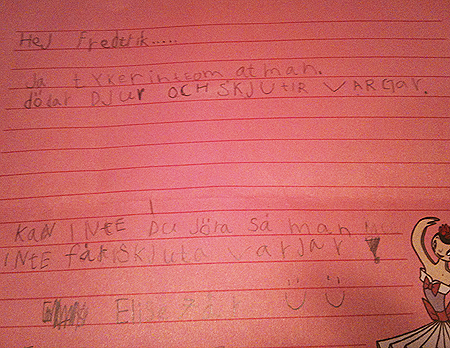 Hej Fredrik.....
Ja tyker inte om at man.
dödar DJUr OCH SKJUtIR VARGar.
KAN INtE DU Jöra Så man nu
INtE fåR SKJUta varjar !